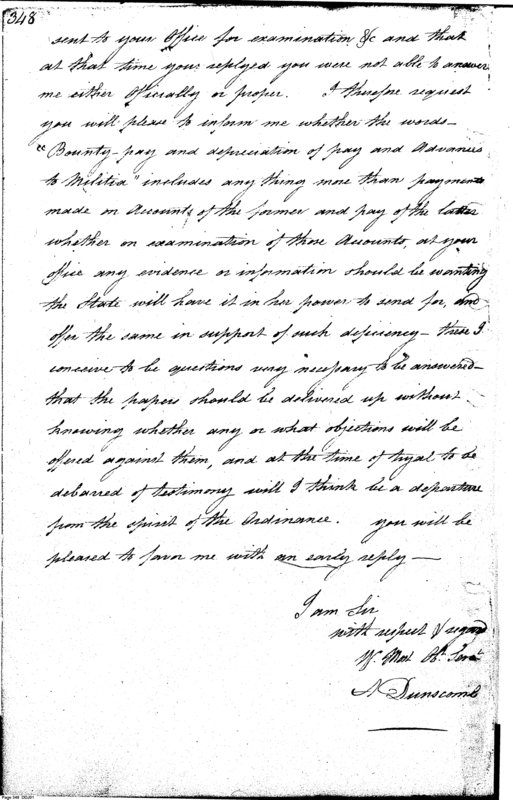 348
sent to your Office for examination &c and that
at that time your replyed you were not able to answer
me either Officially or proper. I therefore request
you will please to inform me whether the words -
"Bounty - pay and depreciation of pay and Advances
to Militia" includes any thing more than payments
made on Accounts of the former and pay of the latter
whether on examination of those Accounts at your
office any evidence or information should be wanting
the State will have it in her power to send for, and
offer the same in support of such deficiency - these I
conceive to be questions very necessary to be answered -
that the papers should be delivered up without
knowing whether any or what objections will be
offered against them, and at the time of tryal to be
debarred of testimony will I think be a departure
from the spirit of the Ordinance. you will be
pleased to favor me with an early reply -
I am Sir
with respect & regard
Yr. Most Ob.t Serv.t
A Dunscomb